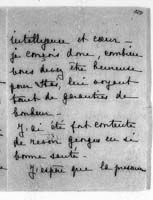 intelligence et cœur –
je conçois donc combien
vous devez être heureuse
pour elles, leur voyant
tant de garanties de
bonheur –
J'ai été fort contente
de revoir georges en si
bonne santé –
J'espère que la